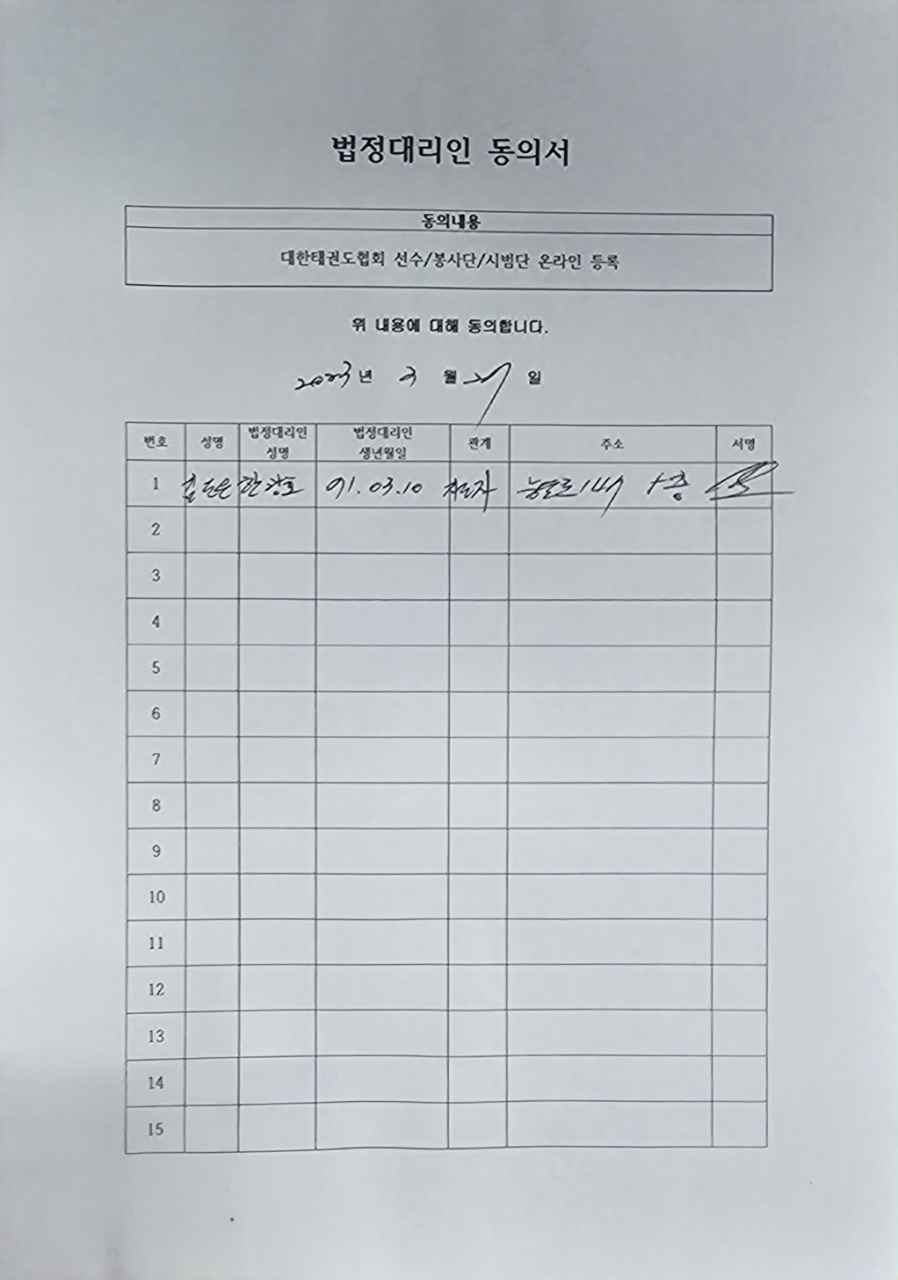 법정대리인 동의서
동의내용
대한태권도협회 선수/봉사단/시범단 온라인 등록
위 내용에 대해 동의합니다.
2023년 3 월 일
번호 성명 법정대리인 성명 법정대리인 생년월일 관계 주소 서명
1 91.03.10
2
3
4
5
6
7
8
9
10
11
12
13
14
15